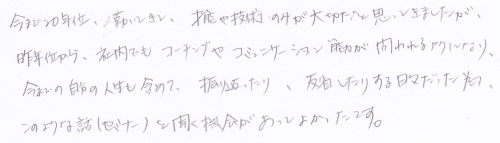 今まで20年位、勤いてきて、才能や技術のみが大切だと思ってきましたが、
昨年位から、社内でもコーチングやコミュニケーション能力が問われるようになり、
今までの自分の人生も含めて、振り返ったり、反省したりする日々だった為、
このような話(セミナー)を聞く機会があってよかったです。